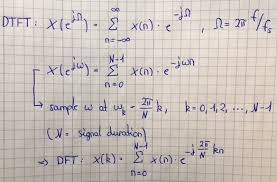 DTFT: X(e^{jΩ}) = ∑_{n=-∞}^{∞} x(n) · e^{-jΩ}, Ω = 2π f/f_s
X(e^{jω}) = ∑_{n=0}^{N-1} x(n) · e^{-jωn}
→ sample ω at ω_k = 2π/N k, k = 0, 1, 2, ..., N-1
(N = signal duration)
⇒ DFT: X(k) = ∑_{n=0}^{N-1} x(n) · e^{-j 2π/N kn}